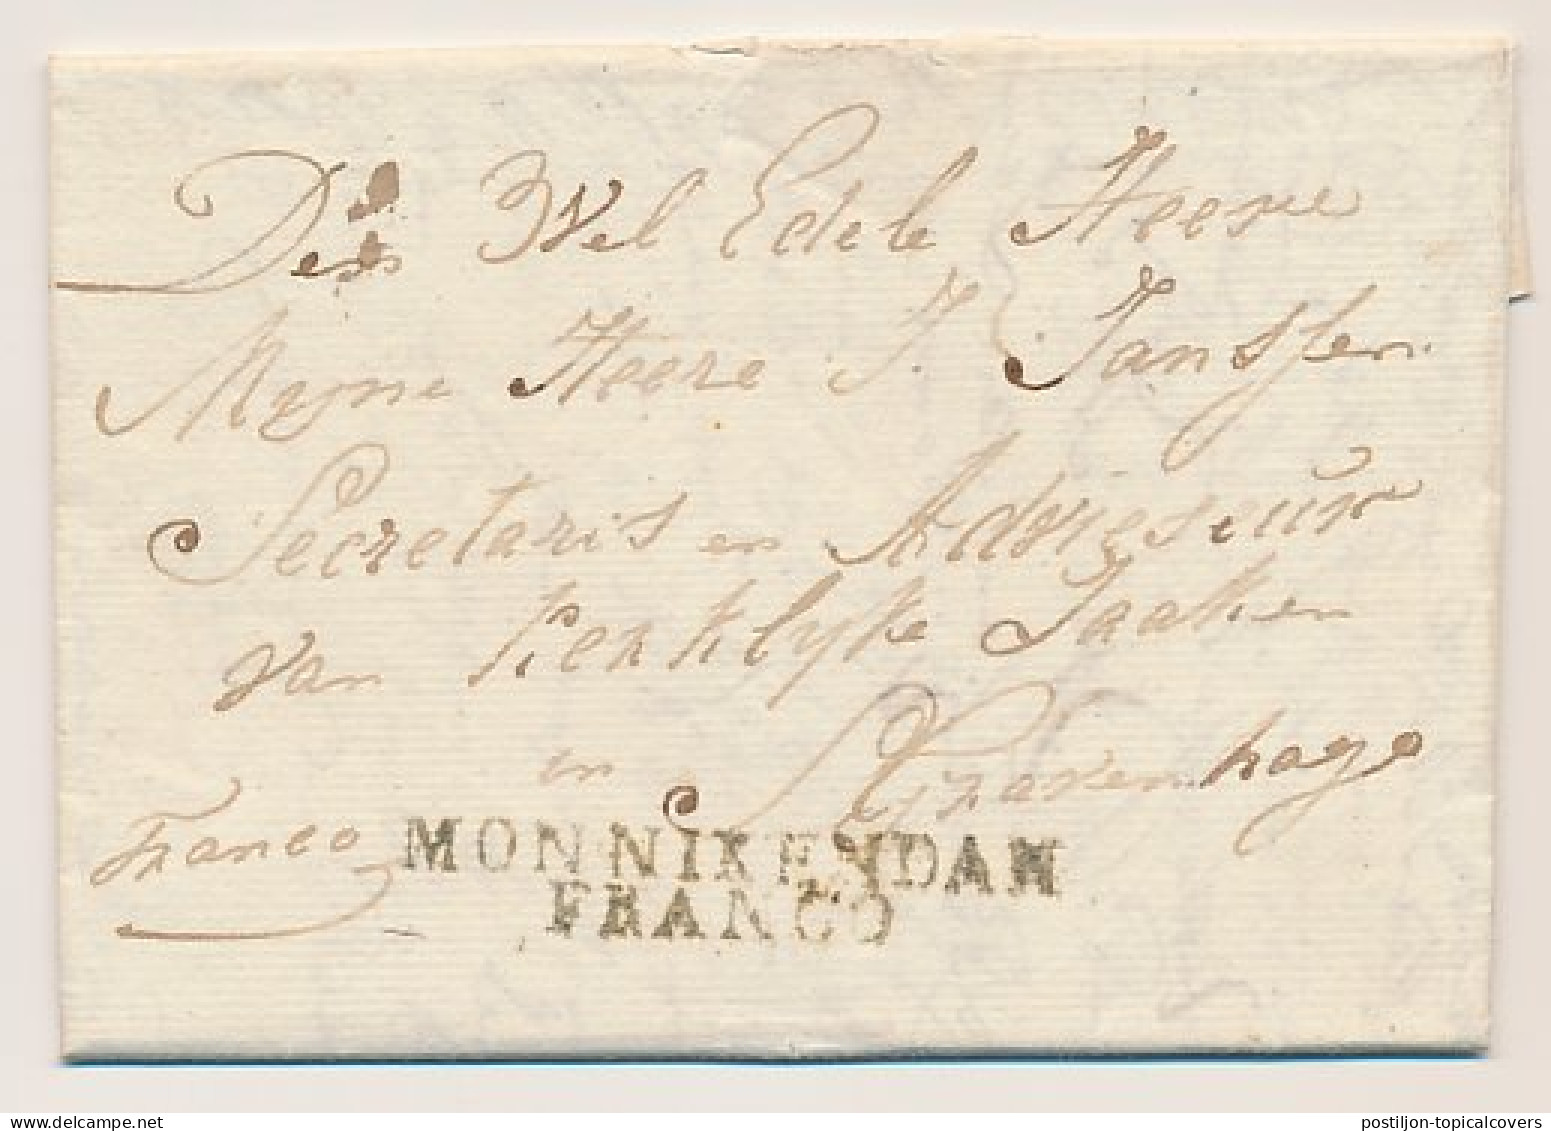 Den Wel Edele Heere
Meyne Heere J. Janssen
Secretaris en Advieseur
van Kerklyke Saaken
in S Gravenhage
Franco
MONNIKENDAM
FRANCO
delcampe.net
postiljon-topicalcovers